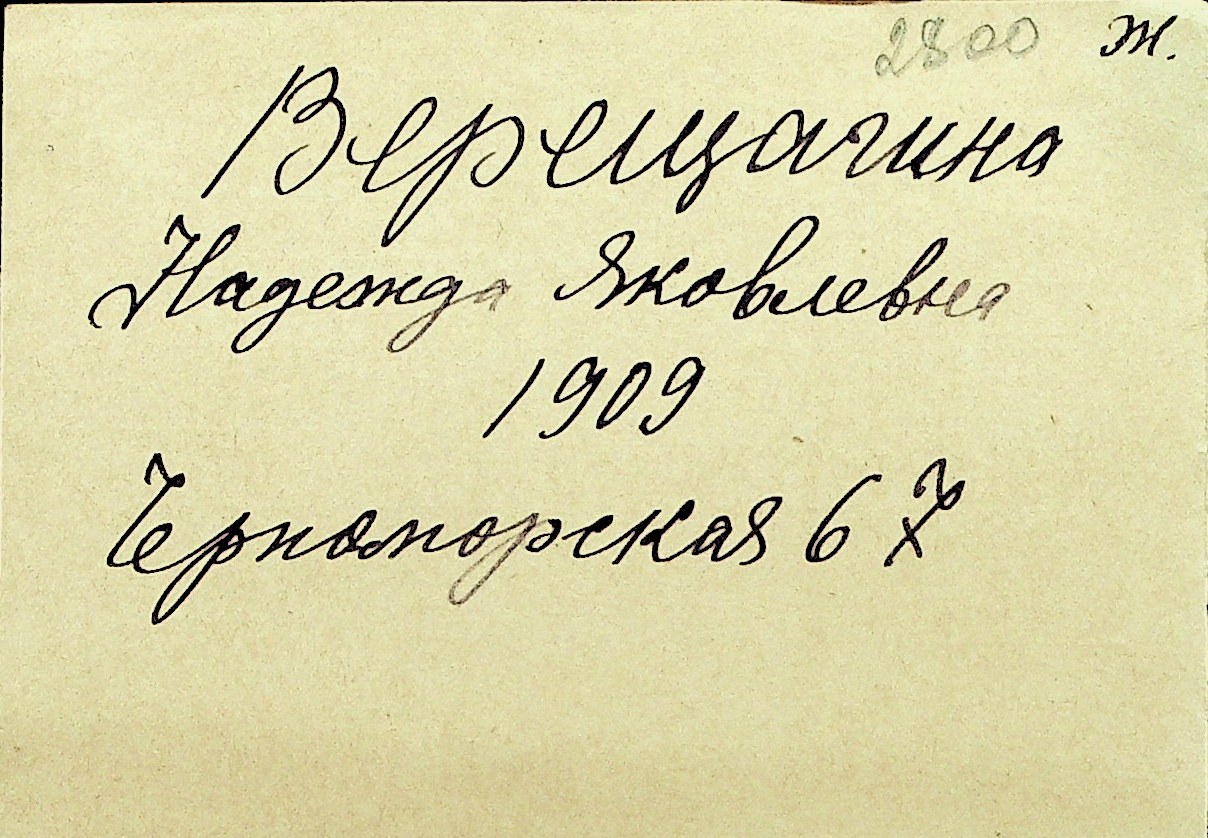 2800 ж.
Верещагина
Надежда Яковлевна
1909
Черноморская 67